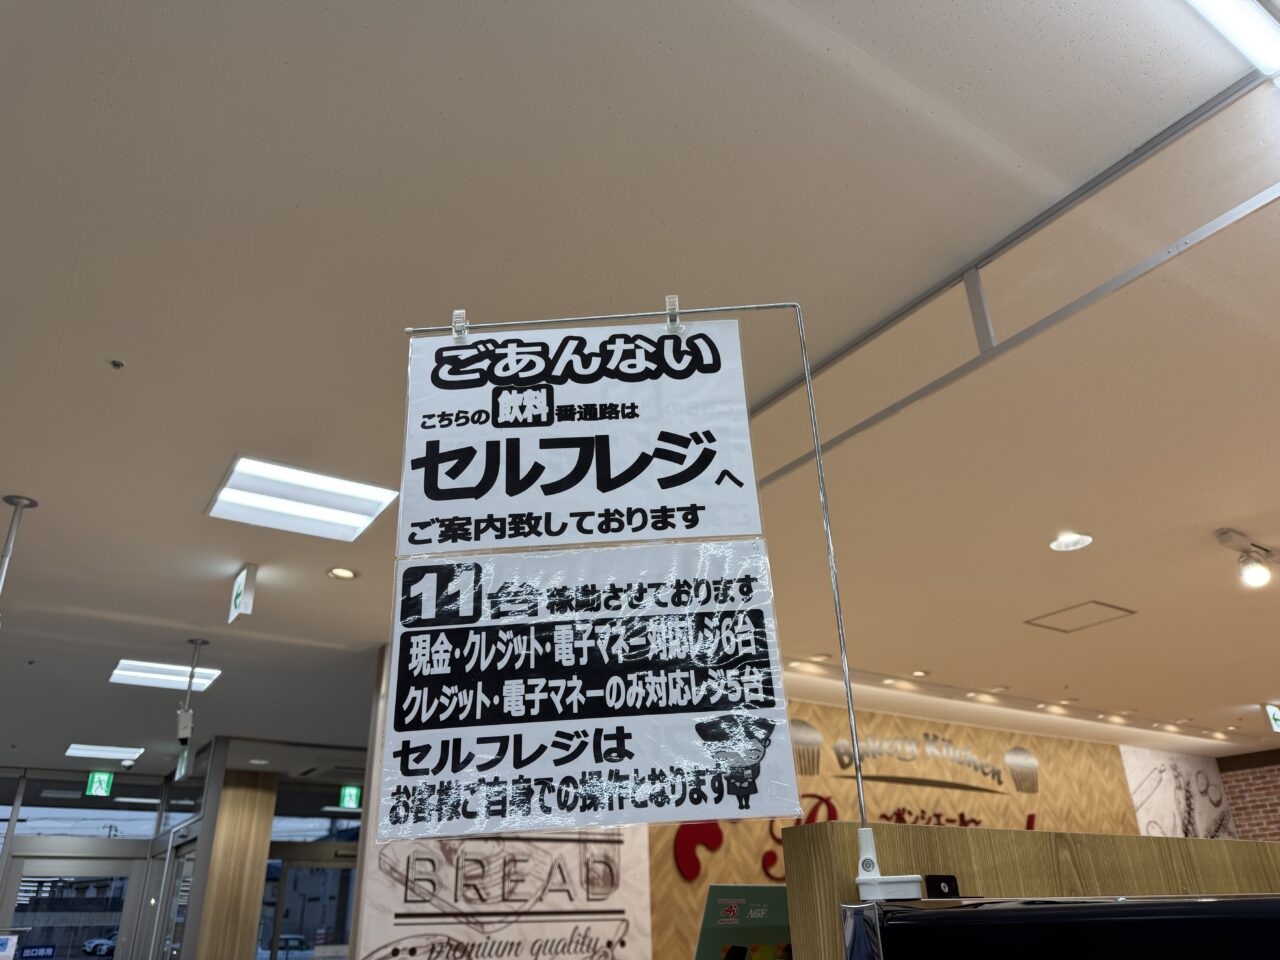 ごあんない
こちらの飲料番通路は
セルフレジへ
ご案内致しております
11台稼動させております
現金・クレジット・電子マネー対応レジ6台
クレジット・電子マネーのみ対応レジ5台
セルフレジは
お客様ご自身での操作となります
Bakery Kitchen
～ボンシェール～
BREAD
premium quality
AGF
出口専用